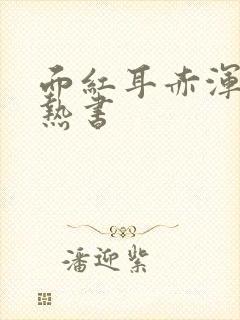 面紅耳赤渾
熱書
潘迎紫